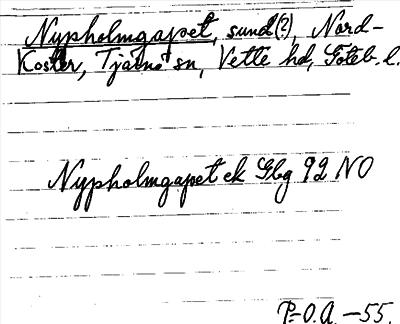 Nypholmgapet, sund(?), Nord-
Koster, Tjärnö sn, Vette hd, Göteb. l.
Nypholmgapet ek Gbg 92 NO
P-O.A. -55.